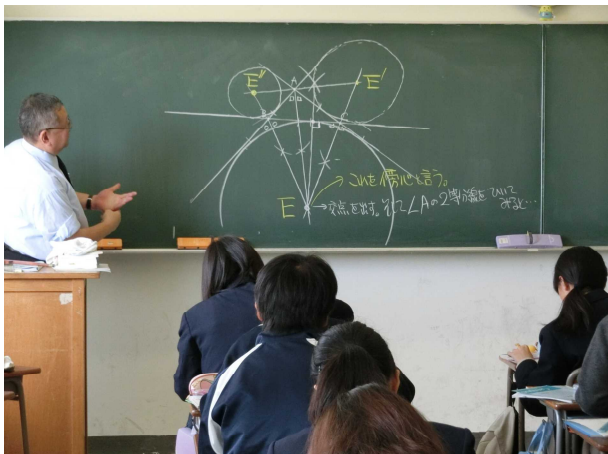 E"
E'
A
これを傍心と言う。
E
→交点を出す。そして∠Aの2等分線をひいて
みると…